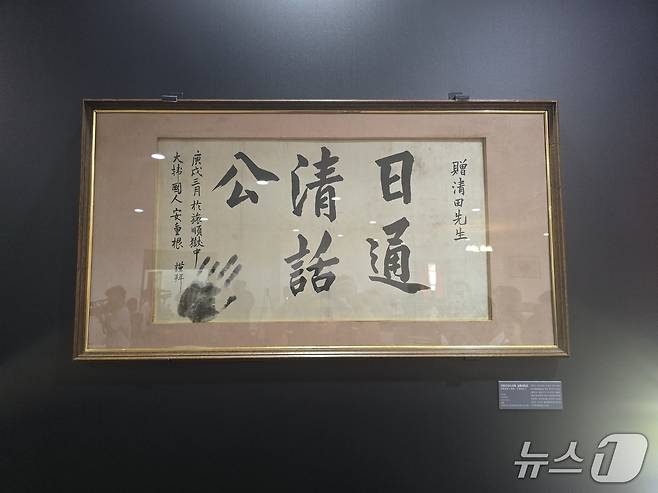 贈清田先生
日通
清話
公
庚戌三月於旅順獄中
大韓國人 安重根 謹拜
뉴스1